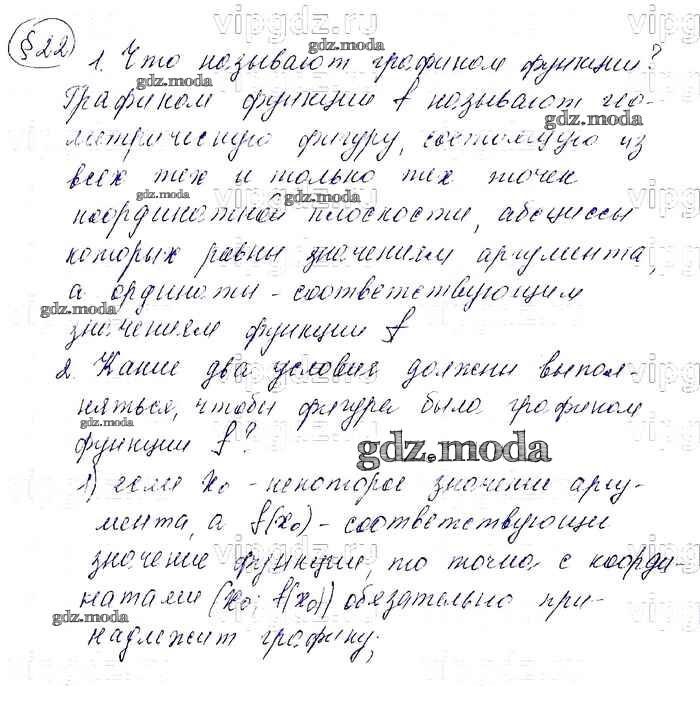 §22
1. Что называют графиком функции?
Графиком функции f называют гео-
метрическую фигуру, состоящую из
всех тех и только тех точек
координатной плоскости, абсциссы
которых равны значениям аргумента,
а ординаты - соответствующим
значениям функции f
2. Какие два условия должны выпол-
няться, чтобы фигура была графиком
функции f?
1) если x₀ - некоторое значение аргу-
мента, а f(x₀) - соответствующее
значение функции, то точка с коорди-
натами (x₀; f(x₀)) обязательно при-
надлежит графику;
vipgdz.ru
gdz.moda